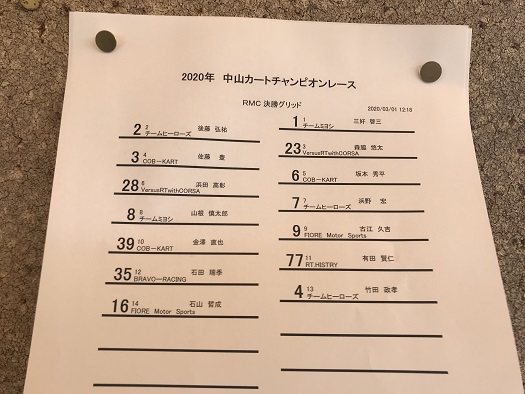 2020年 中山カートチャンピオンレース
RMC 決勝グリッド
2020/03/01 12:18
1 1 三好 啓三
チームミヨシ
2 2 後藤 弘祐
チームヒーローズ
23 3 森脇 悠太
VersusRTwithCORSA
3 4 佐藤 登
COB-KART
6 5 坂本 秀平
COB-KART
28 6 浜田 高彰
VersusRTwithCORSA
7 7 浜野 宏
チームヒーローズ
8 8 山根 慎太郎
チームミヨシ
9 9 古江 久吉
FIORE Motor Sports
39 10 金澤 直也
COB-KART
77 11 有田 賢仁
RT.HISTRY
35 12 石田 瑞季
BRAVO-RACING
4 13 竹田 政孝
チームヒーローズ
16 14 石山 哲成
FIORE Motor Sports